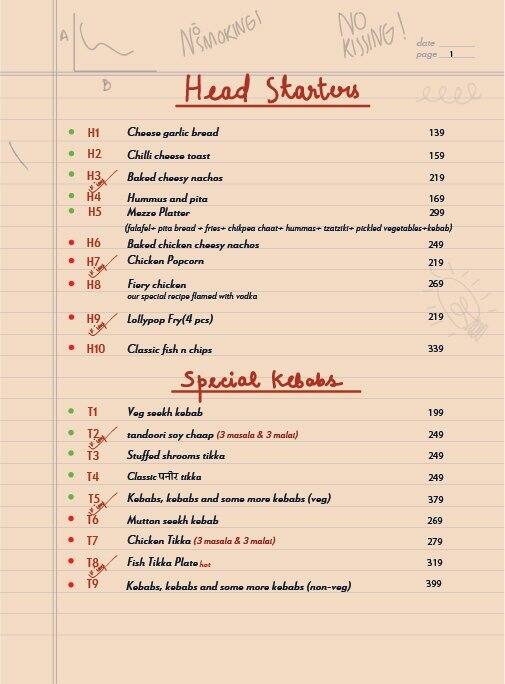 A
B
No SMOKING!
NO KISSING!
date
page 1
Head Starters
H1 Cheese garlic bread 139
H2 Chilli cheese toast 159
H3 Baked cheesy nachos 219
H4 Hummus and pita 169
H5 Mezze Platter 299
(falafel+ pita bread + fries+ chikpea chaat+ hummas+ tzatziki+ pickled vegetables+kebab)
H6 Baked chicken cheesy nachos 249
H7 Chicken Popcorn 219
H8 Fiery chicken 269
our special recipe flamed with vodka
H9 Lollypop Fry(4 pcs) 219
H10 Classic fish n chips 339
Special Kebabs
T1 Veg seekh kebab 199
T2 tandoori soy chaap (3 masala & 3 malai) 249
T3 Stuffed shrooms tikka 249
T4 Classic पनीर tikka 249
T5 Kebabs, kebabs and some more kebabs (veg) 379
T6 Mutton seekh kebab 269
T7 Chicken Tikka (3 masala & 3 malai) 279
T8 Fish Tikka Plate hot 319
T9 Kebabs, kebabs and some more kebabs (non-veg) 399